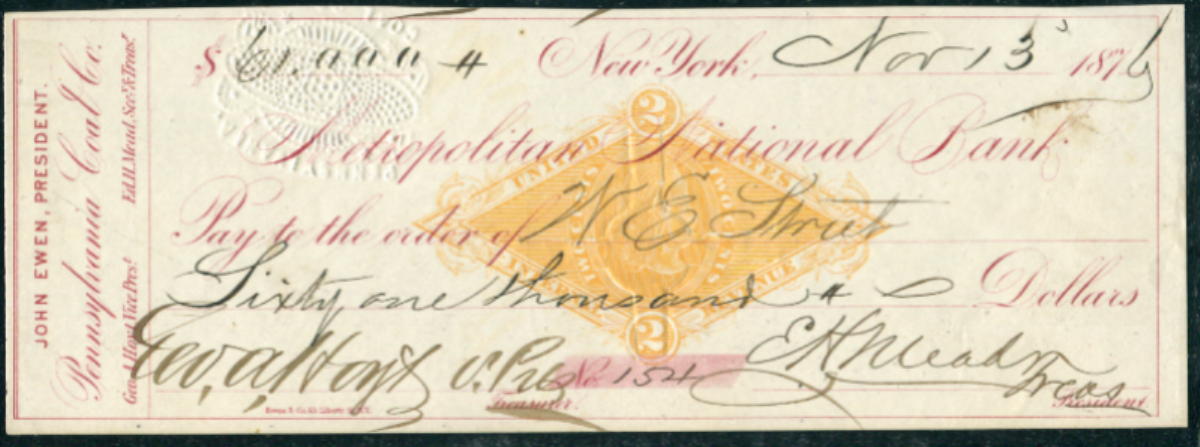 JOHN EWEN, PRESIDENT.
Pennsylvania Coal Co.
Geo. A. Hoyt, Vice Pres! Ed. H. Mead, Sec. & Treas!
$ 61,000 # New York, Nov 13 1876
Metropolitan National Bank
UNITED STATES
Pay to the order of W E Street
Sixty one thousand # Dollars
INTERNAL REVENUE
2
2
Geo. A. Hoyt V. Pres No. 154 E H Mead Treas
Treasurer. President